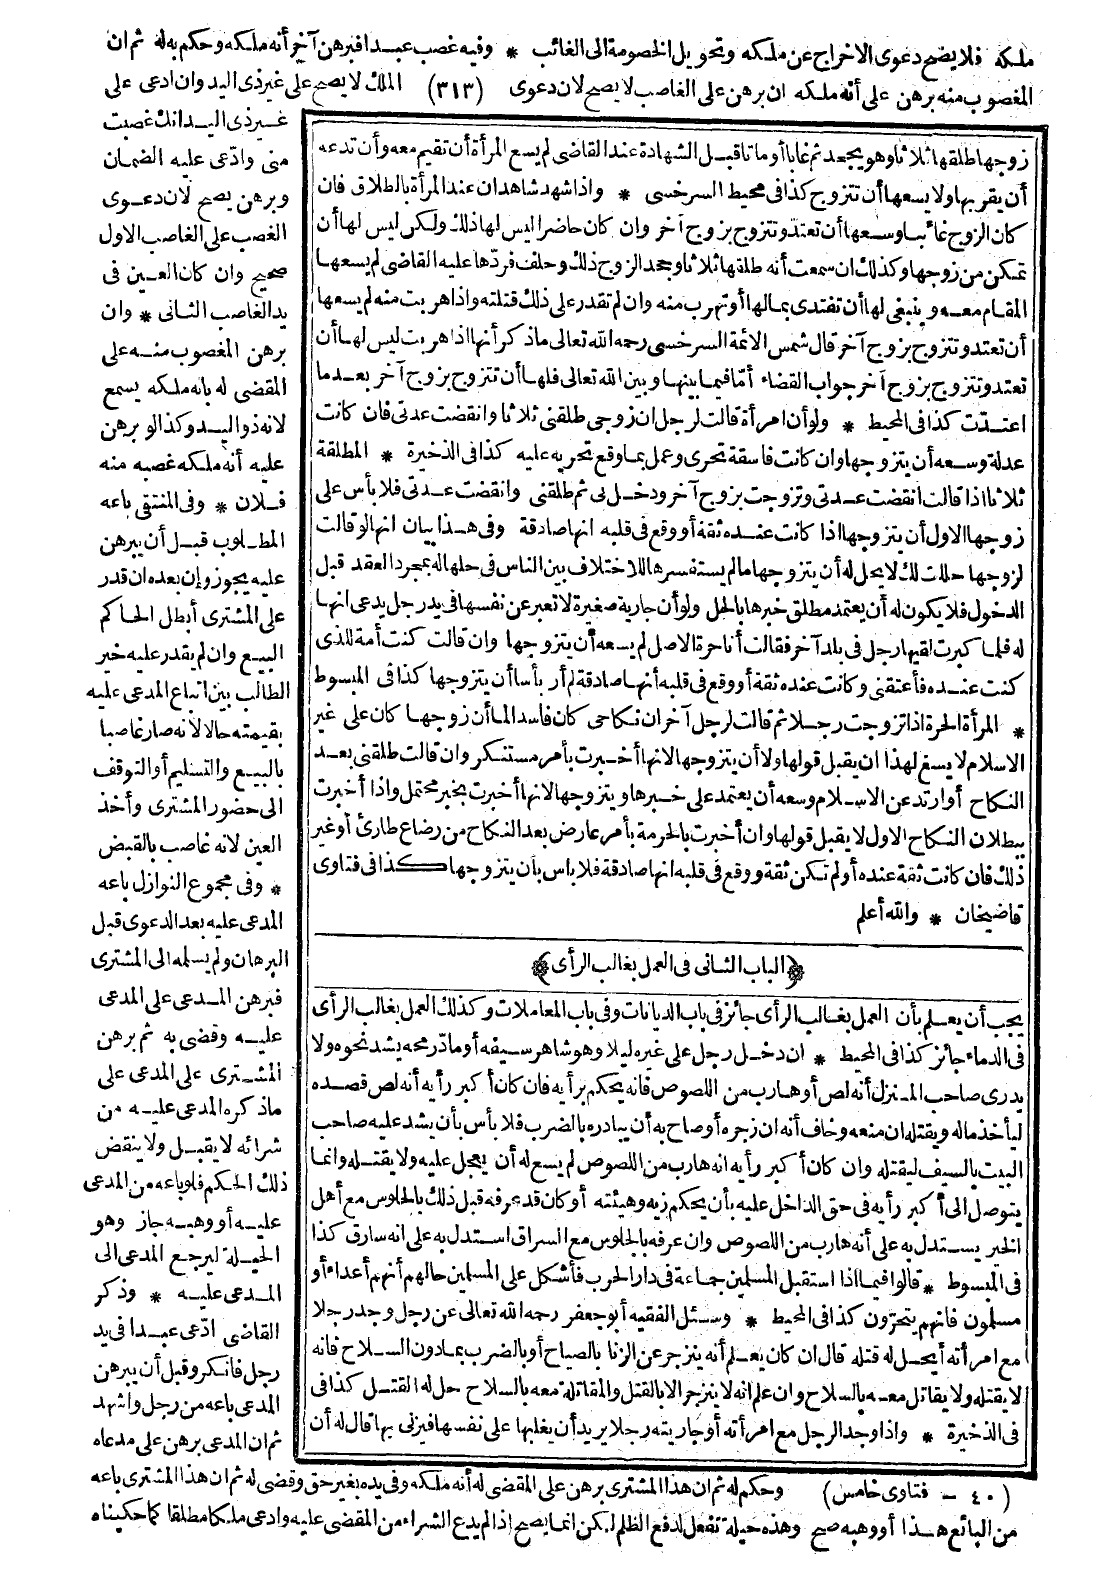 ملكه فلا يصح دعوى الاخراج عن ملكه وتحويل الخصومة الى الغائب * وفيه غصب عبدا فبرهن آخر أنه ملكه وحكم به له ثم ان
المغصوب منه برهن على أنه ملكه ان برهن على الغاصب لا يصح لان دعوى (٣١٣) الملك لا يصح على غير ذى اليد وان ادعى على
غير ذى اليد انك غصبت
منى وادّعى عليه الضمان
وبرهن يصح لان دعوى
الغصب على الغاصب الاول
صحيح وان كان العين فى
يد الغاصب الثانى * وان
برهن المغصوب منه على
المقضى له بانه ملكه يسمع
لانه ذو اليد وكذا لو برهن
عليه أنه ملكه غصبه منه
فلان * وفى المنتقى باعه
المطلوب قبل أن يبرهن
عليه يجوز وإن بعده ان قدر
على المشترى أبطل الحاكم
البيع وان لم يقدر عليه خير
الطالب بين اتباع المدعى عليه
بقيمته حالا لانه صار غاصبا
بالبيع والتسليم أو التوقف
الى حضور المشترى وأخذ
العين لانه غاصب بالقبض
* وفى مجموع النوازل باعه
المدعى عليه بعد الدعوى قبل
البرهان ولم يسلمه الى المشترى
فبرهن المدعى على المدعى
عليه وقضى به ثم برهن
المشترى على المدعى على
ما ذكره المدعى عليه من
شرائه لا يقبل ولا ينقض
ذلك الحكم فلو باعه من المدعى
عليه أو وهبه جاز وهو
الحيلة ليرجع المدعى الى
المدعى عليه * وذكر
القاضى ادّعى عبدا فى يد
رجل فانكر وقبل أن يبرهن
المدعى باعه من رجل واشهد
ثم ان المدعى برهن على مدعاه
زوجها طلقها ثلاثا وهو يجحد ثم غابا أو ماتا قبل الشهادة عند القاضى لم يسع المرأة أن تقيم معه وأن تدعه
أن يقربها ولا يسعها أن تتزوج كذا فى محيط السرخسى * واذا شهد شاهدان عند المرأة بالطلاق فان
كان الزوج غائبا وسعها أن تعتد وتتزوج بزوج آخر وان كان حاضرا ليس لها ذلك ولكن ليس لها أن
تمكن من زوجها وكذلك ان سمعت أنه طلقها ثلاثا وجحد الزوج ذلك وحلف فردّها عليه القاضى لم يسعها
المقام معه وينبغى لها أن تفتدى بمالها أو تهرب منه وان لم تقدر على ذلك قتلته واذا هربت منه لم يسعها
أن تعتد وتتزوج بزوج آخر قال شمس الائمة السرخسى رحمه الله تعالى ما ذكر أنها اذا هربت ليس لها أن
تعتد وتتزوج بزوج آخر جواب القضاء أمّا فيما بينها وبين الله تعالى فلها أن تتزوج بزوج آخر بعد ما
اعتدّت كذا فى المحيط * ولو أن امرأة قالت لرجل ان زوجى طلقنى ثلاثا وانقضت عدتى فان كانت
عدلة وسعه أن يتزوجها وان كانت فاسقة تحرى وعمل بما وقع تحريه عليه كذا فى الذخيرة * المطلقة
ثلاثا اذا قالت انقضت عدتى وتزوجت بزوج آخر ودخل بى ثم طلقنى وانقضت عدتى فلا بأس على
زوجها الاول أن يتزوجها اذا كانت عنده ثقة أو وقع فى قلبه انها صادقة وفى هذا بيان انها لو قالت
لزوجها حللت لك لا يحل له أن يتزوجها ما لم يستفسرها للاختلاف بين الناس فى حلها له بمجرد العقد قبل
الدخول فلا يكون له أن يعتمد مطلق خبرها بالحل ولو أن جارية صغيرة لا تعبر عن نفسها فى يد رجل يدعى انها
له فلما كبرت لقيها رجل فى بلد آخر فقالت أنا حرة الاصل لم يسعه أن يتزوجها وان قالت كنت أمة للذى
كنت عنده فأعتقنى وكانت عنده ثقة أو وقع فى قلبه أنها صادقة لم أر بأسا أن يتزوجها كذا فى المبسوط
* المرأة الحرة اذا تزوجت رجلا ثم قالت لرجل آخر ان نكاحى كان فاسدا لما أن زوجها كان على غير
الاسلام لا يسع لهذا ان يقبل قولها ولا أن يتزوجها لانها أخبرت بأمر مستنكر وان قالت طلقنى بعد
النكاح أو ارتد عن الاسلام وسعه أن يعتمد على خبرها ويتزوجها لانها أخبرت بخبر محتمل واذا أخبرت
ببطلان النكاح الاول لا يقبل قولها وان أخبرت بالحرمة بأمر عارض بعد النكاح من رضاع طارئ أو غير
ذلك فان كانت ثقة عنده أو لم تكن ثقة ووقع فى قلبه انها صادقة فلا باس بأن يتزوجها كذا فى فتاوى
قاضيخان * والله أعلم
﴿الباب الثانى فى العمل بغالب الرأى﴾
يجب أن يعلم بأن العمل بغالب الرأى جائز فى باب الديانات وفى باب المعاملات وكذلك العمل بغالب الرأى
فى الدماء جائز كذا فى المحيط * ان دخل رجل على غيره ليلا وهو شاهر سيفه أو مادّ رمحه يشد نحوه ولا
يدرى صاحب المنزل أنه لص أو هارب من اللصوص فانه يحكم برأيه فان كان أكبر رأيه أنه لص قصده
ليأخذ ماله ويقتله ان منعه وخاف أنه ان زجره أو صاح به أن يبادره بالضرب فلا بأس بأن يشد عليه صاحب
البيت بالسيف ليقتله وان كان أكبر رأيه انه هارب من اللصوص لم يسع له أن يعجل عليه ولا يقتله وانما
يتوصل الى أكبر رأيه فى حق الداخل عليه بأن يحكم زيه وهيئته أو كان قد عرفه قبل ذلك بالجلوس مع أهل
الخير يستدل به على أنه هارب من اللصوص وان عرفه بالجلوس مع السراق استدل به على انه سارق كذا
فى المبسوط * قالوا فيما اذا استقبل المسلمين جماعة فى دار الحرب فأشكل على المسلمين حالهم أنهم أعداء أو
مسلمون فانهم يتحرّون كذا فى المحيط * وسئل الفقيه أبو جعفر رحمه الله تعالى عن رجل وجد رجلا
مع امرأته أيحل له قتله قال ان كان يعلم أنه ينزجر عن الزنا بالصياح أو بالضرب بما دون السلاح فانه
لا يقتله ولا يقاتل معه بالسلاح وان علم انه لا ينزجر الا بالقتل والمقاتلة معه بالسلاح حل له القتل كذا فى
فى الذخيرة * واذا وجد الرجل مع امرأته أو جاريته رجلا يريد أن يغلبها على نفسها فيزنى بها قال له أن
(٤٠ - فتاوى خامس) وحكم له ثم ان هذا المشترى برهن على المقضى له أنه ملكه وفى يده بغير حق وقضى له ثم ان هذا المشترى باعه
من البائع هذا أو وهبه صح وهذه حيلة تفعل لدفع الظلم لكن انما يصح إذا لم يدع الشراء من المقضى عليه وادعى ملكا مطلقا كما حكيناه